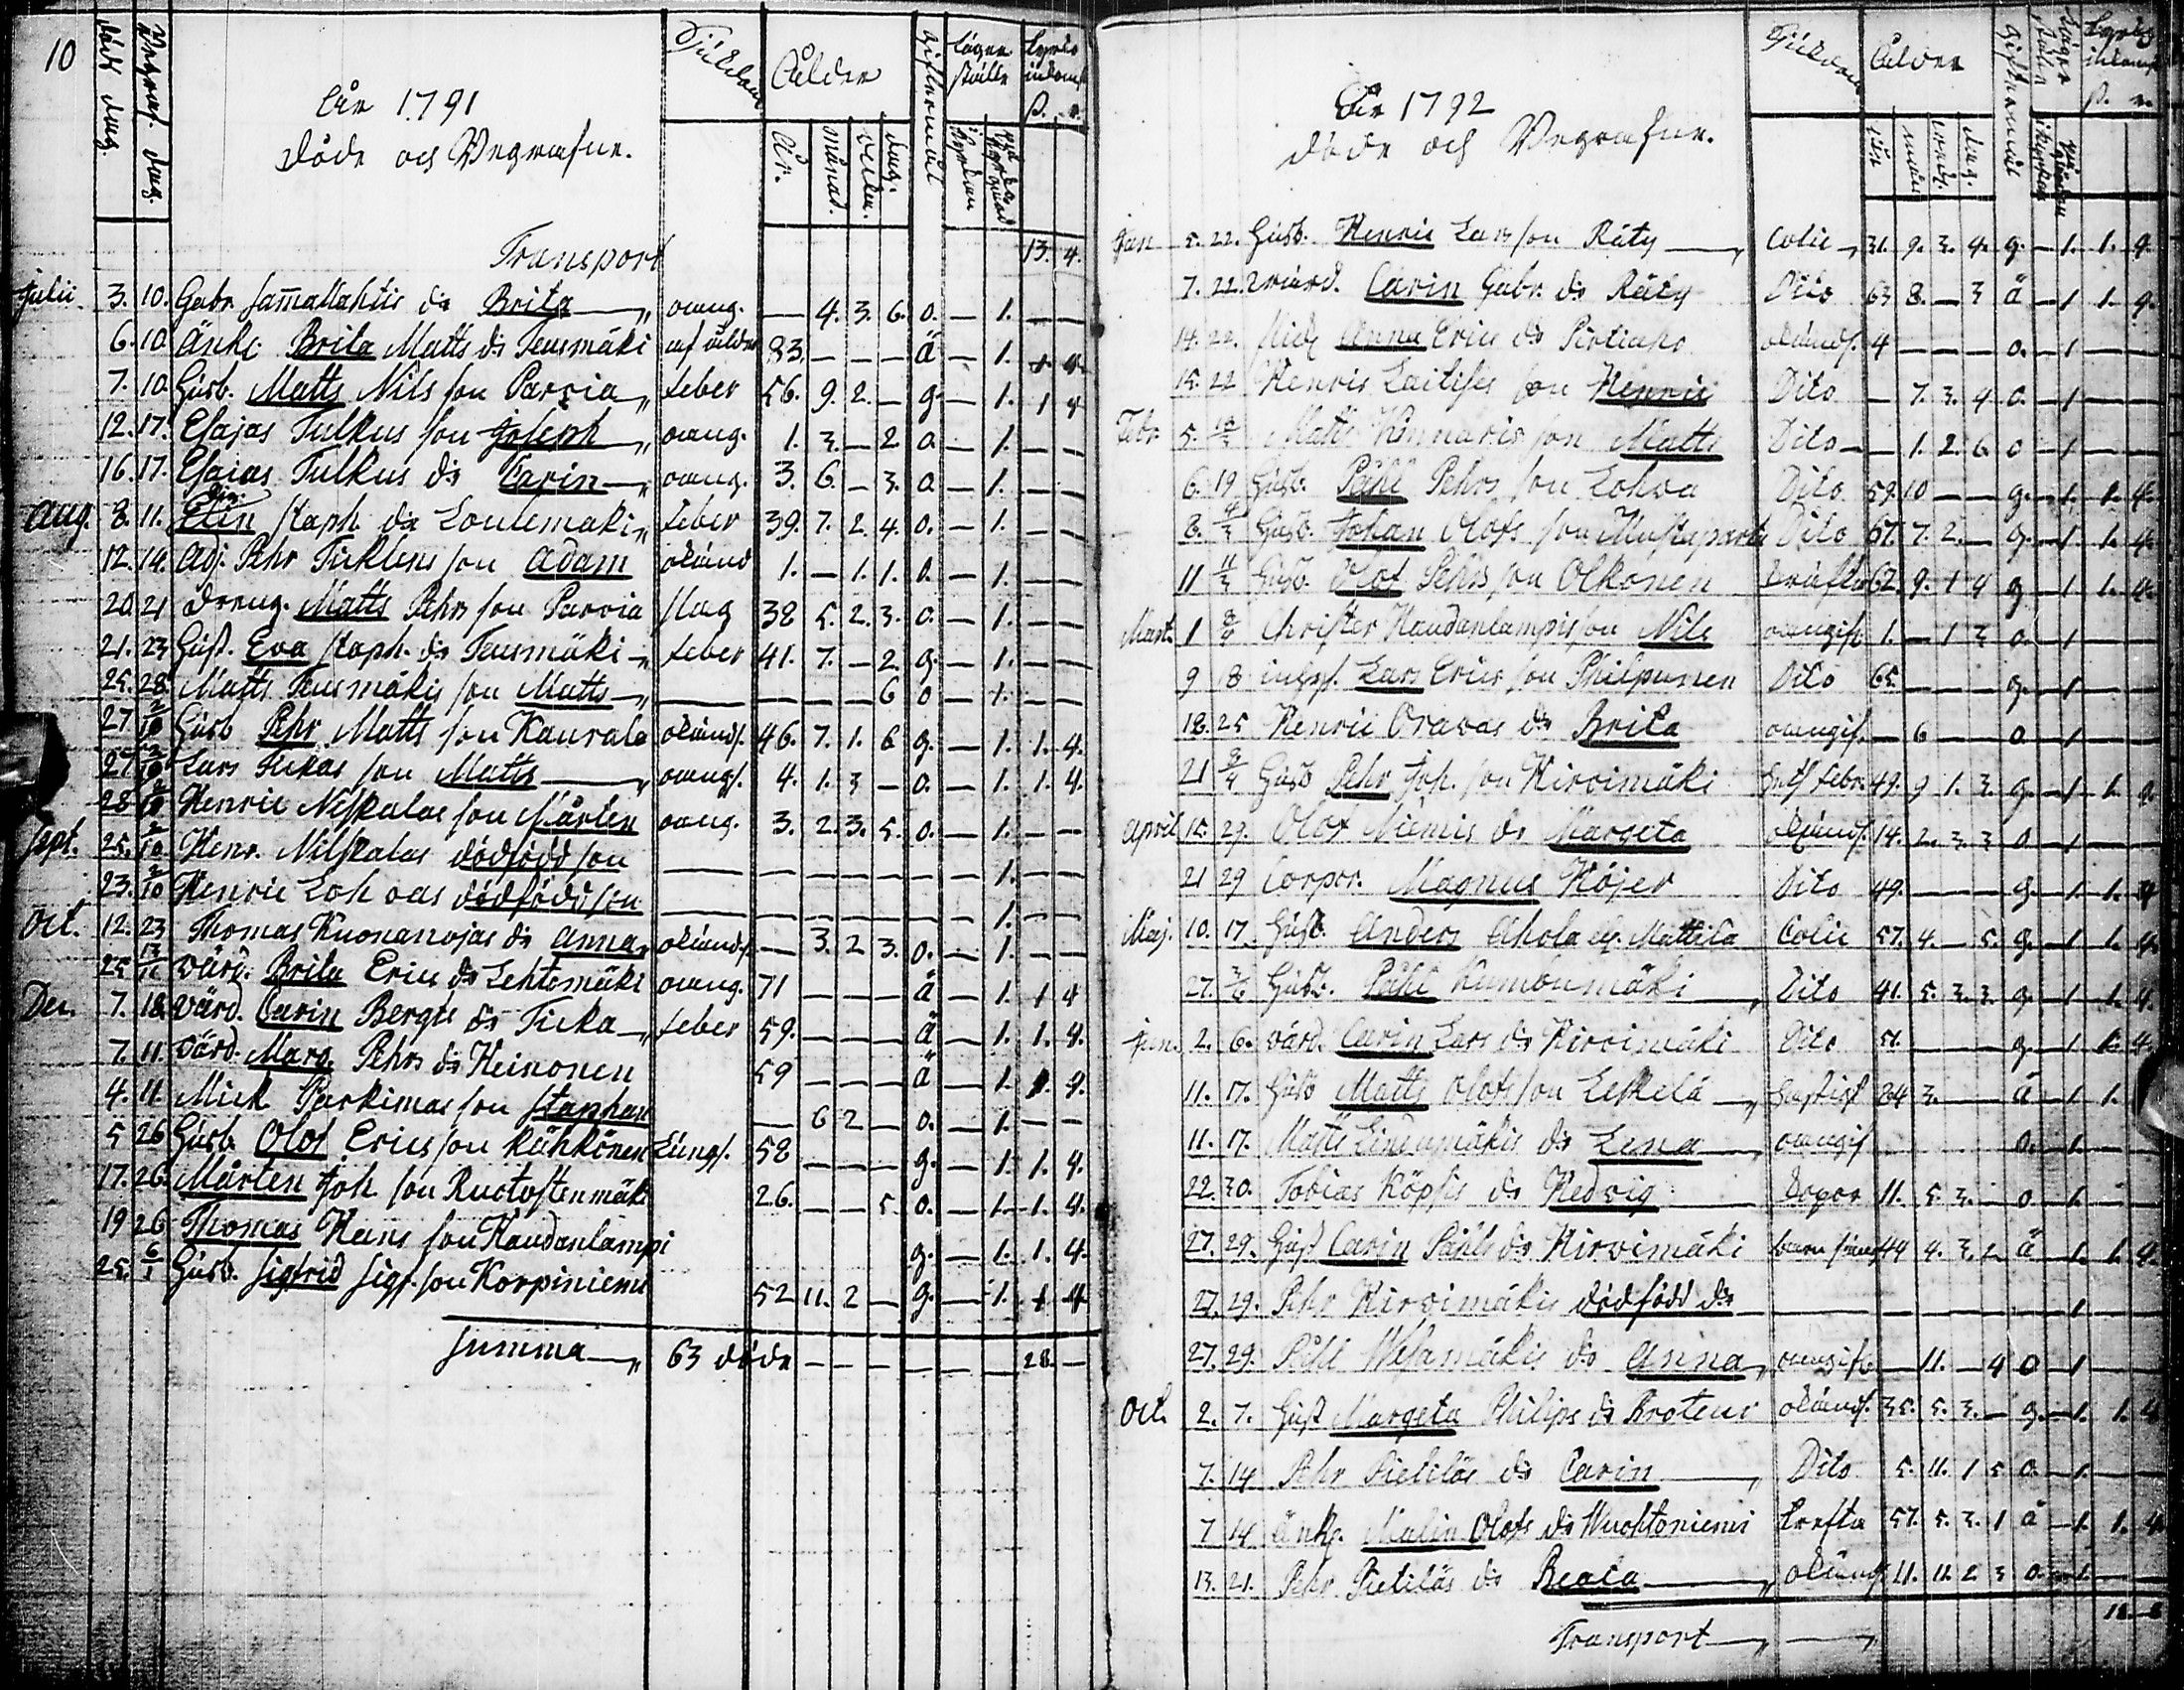 10
döds dag.
Begraf. dag.
År 1791
Döde och Begrafne.
Sjukdom
Ålder
År.
Månad.
Veckor.
dag.
Giftermål
Läger ställe
i kyrkan
Transport 13. 4.
Julii. 3. 10. Gabr. Sam̅allahtis dr Brita — oang. — 4. 3. 6. o. — 1. — —
6. 10. Änk. Brita Matts dr Teusmäki af ålder 83. — — — ä — 1. 1. 4.
7. 10. Husb. Matts Nils son Parvia feber 56. 9. 2. — g. — 1. 1 4
12. 17. Esajas Tulkus son Joseph oang. 1. 3. — 2 o. — 1. — —
16. 17. Esaias Tulkus dr Carin oang. 3. 6. — 3. o. — 1. — —
Aug. 8. 11. Elin Staph. dr Loulemaki feber 39. 7. 2. 4. o. — 1. — —
12. 14. Adj. Pehr Ticklens son Adam okänd 1. — 1. 1. o. — 1. — —
20 21 Dreng. Matts Pehrs son Parvia slag 38 5. 2. 3. o. — 1. — —
21. 23 Eva Staph. dr Teusmäki feber 41. 7. — 2. g. — 1. — —
25. 28. Matts Teusmäkis son Matts — — — — 6 o — 1. — —
27 2/10 Husb. Pehr Matts son Kaurala okänd. 46. 7. 1. 6 g. — 1. 1. 4.
27 2/10 Lars Tickas son Matts oang. 4. 1. 3 — o. — 1. 1. 4.
28 2/10 Henric Niskalas son Mårten oang. 3. 2. 3. 5. o. — 1. — —
Sept. 25. 2/10 Henr. Niskalas dödfödd son — — — — — — 1. — —
23. 2/10 Henric Lohvas dödfödd son — — — — — — 1. — —
Oct. 12. 23 Thomas Kuonanojas dr Anna okänd. — 3. 2 3. o. — 1. — —
25 13/11 värd. Brita Erics dr Lehtomäki oang. 71 — — — ä — 1. 1 4
Dec. 7. 18. värd. Carin Bergts dr Ticka feber 59. — — — ä — 1. 1. 4.
7. 11. värd. Marg. Pehrs dr Heinonen 59 — — — ä — 1. 1. 4.
4. 11. Mick Parkimas son Staphan — 6 2 — o. — 1. — —
5 26 Husb. Olof Erics son Kähkönen Lungs. 58 — — — g. — 1. 1. 4.
17. 26. Mårten Joh. son Ruotostenmäki 26. — — 5 o. — 1. 1. 4.
19 26 Thomas Hans son Haudanlampi g. — 1. 1. 4.
25. 6/1 Husb. Sigfrid Sigf. son Korpiniemi 52 11. 2 — g. — 1. 1 4
Summa 63 döde — — — — — — 28. —
År 1792
Döde och Begrafne.
Sjukdom
Ålder
Giftermål
Jan 5. 22. Husb. Henric Lars son Räty Colic 31. 9. 3. 4. g. — 1. 1. 4.
7. 22. värd. Carin Gabr. dr Räty Dito 63 8. — 3 ä — 1 1. 4.
14. 22. Anna Erics dr okänds. 4 — — — o. — 1 —
15. 22 Henric Laitises son Henric Dito — 7. 3. 4 o. — 1 —
Febr. 5. Matts Kinnaris son Matts Dito — 1. 2. 6 o — 1 —
6. 19 Husb. Påhl Pehrs son Lohva Dito 59. 10 — — g. — 1. 1. 4.
8. 4/3 Husb. Johan Olofs son Dito 67. 7. 2. — g. — 1 1. 4.
11 11/3 Husb. Olof Pehrs son Olkonen 62. 9. 1 4 g — 1 1. 4.
Mart. 1 8/4 Christer Haudanlampis son Nils oangif. 1. — 1 3 o. — 1 —
9 18 inhys. Lars Erics son Philpunen Dito 65. — — — g. — 1 —
18. 25 Henric Oravas dr Brita oangif. — 6 — — o — 1 —
21 8/4 Husb. Pehr Joh. son Hirvimäki febr. 49. 9 1. 3. g. — 1 1. 4.
April 15. 29. Olof Niemis dr Margeta okänds. 14. 2. 3. 3 o — 1 —
21 29 Corpor. Magnus Höjer Dito 49. — — — g. — 1. 1. 4
Maj. 10. 17. Husb. Anders Ahola el. Mattila Colic 57. 4. — 5. g. — 1 1. 4.
27. 3/6 Husb. Påhl Kumbumäki Dito 41. 5. 3. 3. g. — 1 1. 4.
Jun. 2. 6. värd. Carin Lars dr Hirvimäki Dito 51. — — — g. — 1 1. 4.
11. 17. Husb. Matts Olofs son Leskelä 24 3. — — ä — 1 1.
11. 17. Matts Lindumäkis dr Lena oangif o. — 1. —
22. 30. Tobias Köpsis dr Hedvig 11. 5. 3. — o. — 1. —
27. 29. Carin Påhls dr Hirvimäki barnsäng 44 4. 3. 2 ä — 1. 1. 4.
27. 29. Pehr Hirvimäkis dödfödd dr — — — — — 1 —
27. 29. Påhl Wesamäkis dr Anna oangif. — 11. — 4 o — 1 —
Oct. 2. 7. Margeta Philips dr Brotens okänds. 35. 5. 3. — g. — 1. 1. 4
7. 14 Pehr Pietiläs dr Carin Dito 5. 11. 1 5 o. — 1. —
7 14 änk. Malin Olofs dr Wuohtoniemi 57. 5. 3. 1 ä — 1. 1. 4
13. 21. Pehr Pietiläs dr Beata okäng 11. 11. 2 3 o. — 1. —
Transport